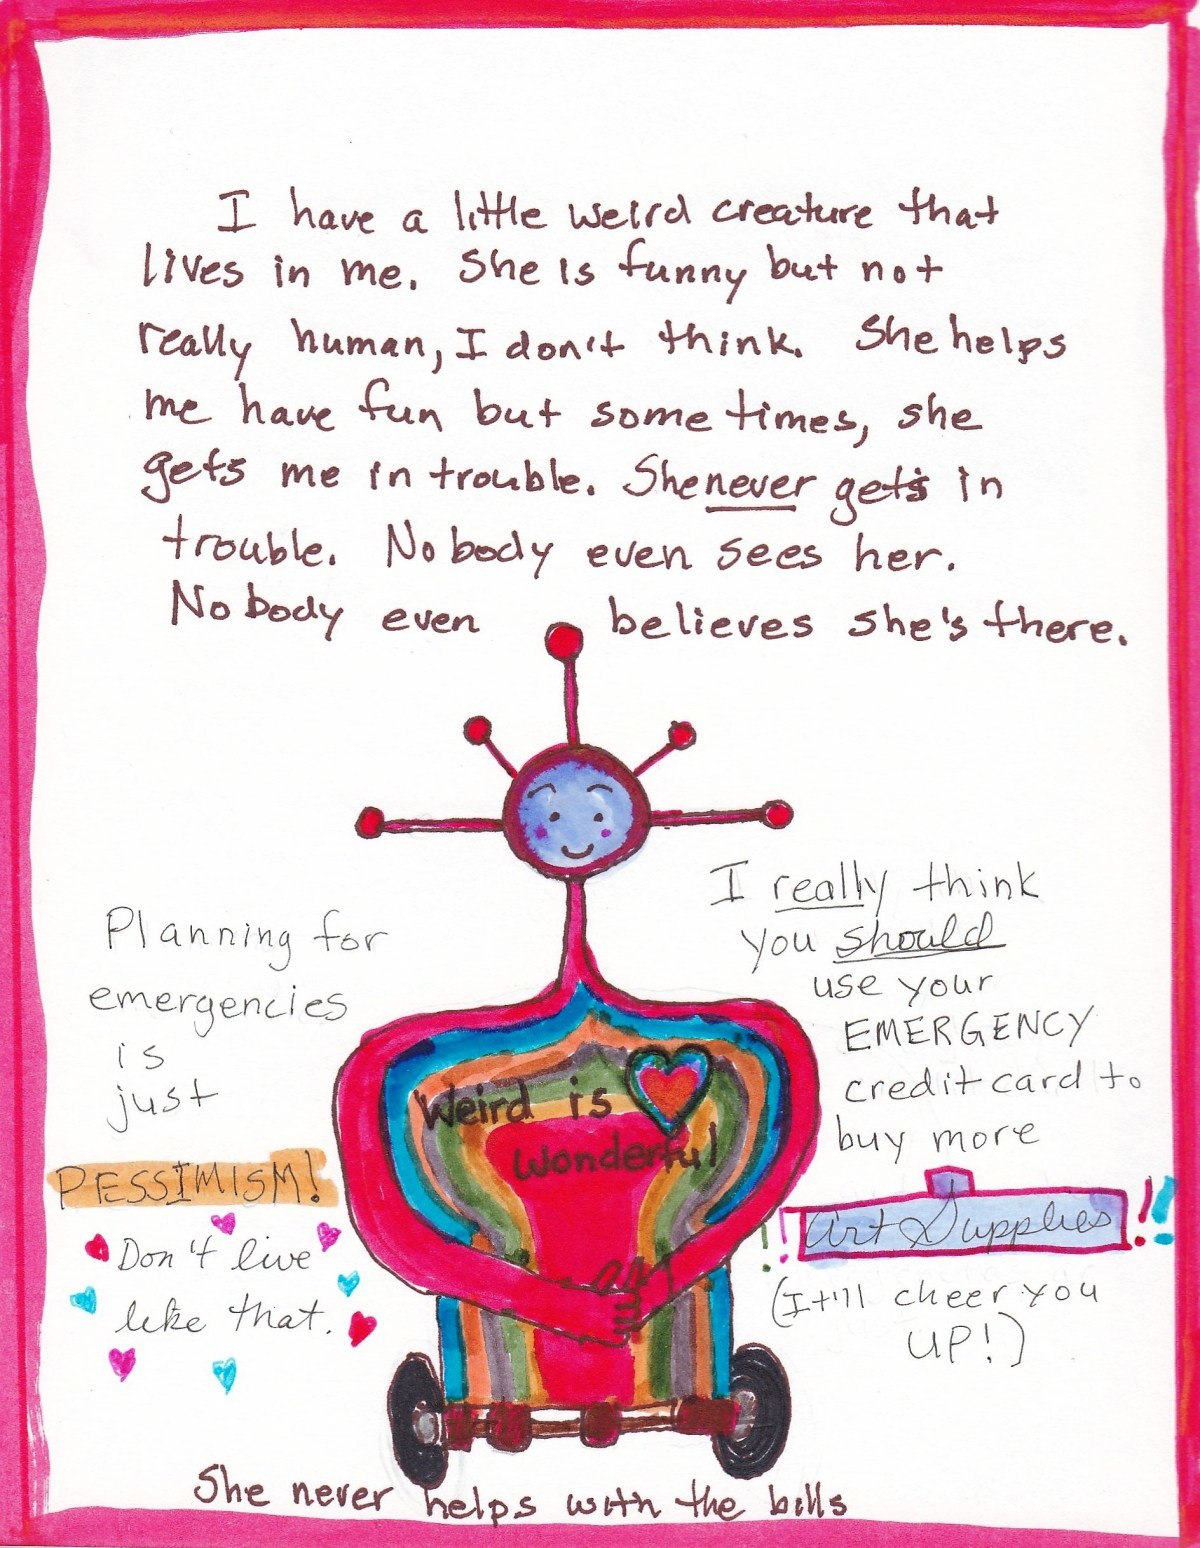 I have a little weird creature that
lives in me. She is funny but not
really human, I don't think. She helps
me have fun but sometimes, she
gets me in trouble. She never gets in
trouble. Nobody even sees her.
Nobody even believes she's there.
Planning for
emergencies
is
just
PESSIMISM!
Don't live
like that.
Weird is
Wonderful
I really think
you should
use your
EMERGENCY
credit card to
buy more
Art Supplies!!
(It'll cheer you
UP!)
She never helps with the bills